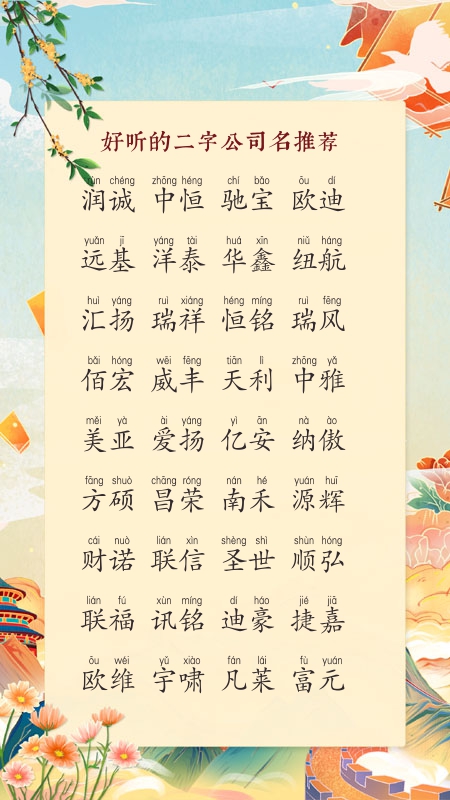 好听的二字公司名推荐
rùn chéng zhōng héng chí bǎo ōu dí
润诚 中恒 驰宝 欧迪
yuǎn jī yáng tài huá xīn niǔ háng
远基 洋泰 华鑫 纽航
huì yáng ruì xiáng héng míng ruì fēng
汇扬 瑞祥 恒铭 瑞风
bǎi hóng wēi fēng tiān lì zhōng yǎ
佰宏 威丰 天利 中雅
měi yà ài yáng yì ān nà ào
美亚 爱扬 亿安 纳傲
fāng shuò chāng róng nán hé yuán huī
方硕 昌荣 南禾 源辉
cái nuò lián xìn shèng shì shùn hóng
财诺 联信 圣世 顺弘
lián fú xùn míng dí háo jié jiā
联福 讯铭 迪豪 捷嘉
ōu wéi yǔ xiào fán lái fù yuán
欧维 宇啸 凡莱 富元